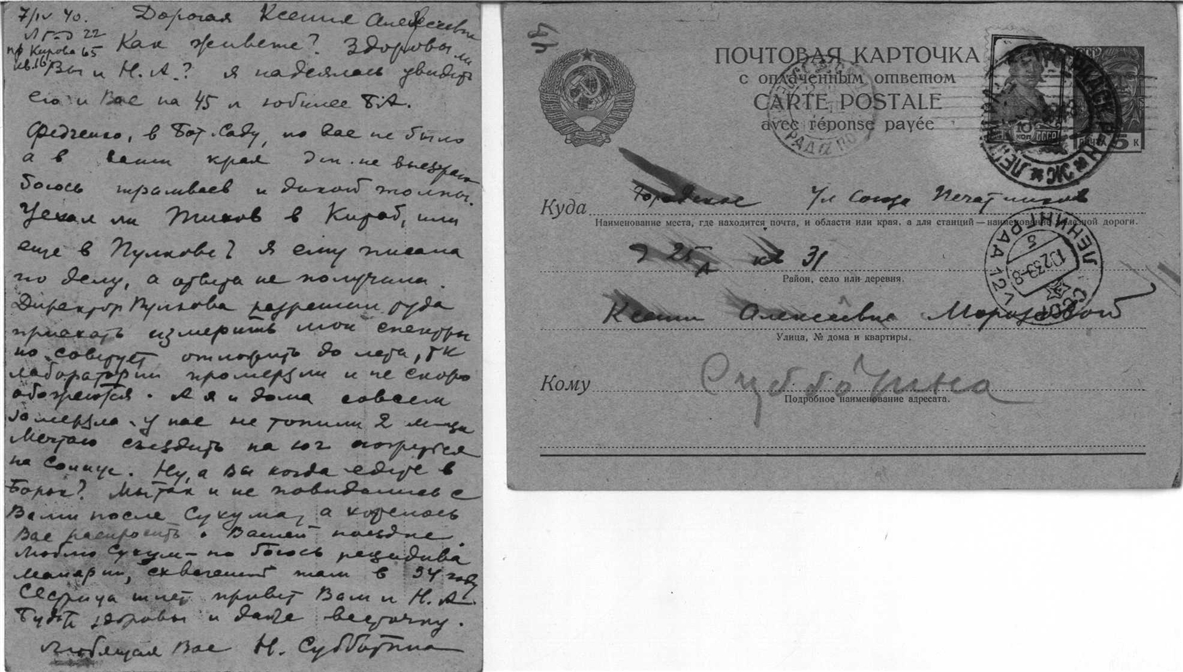 7/IV 40.
Л-град 22
пр Кирова 65
кв.16
Дорогая Ксения Алексеевна
Как живете? Здоровы ли
Вы и Н.А.? Я надеялась увидеть
его и Вас на 45 л юбилее Б.А.
Федченко, в Бот.Саду, но Вас не было
а в ваши края я не выезжаю
боюсь трамваев и дикой толпы.
Уехал ли в или
еще в Пулкове? Я ему писала
по делу, а ответа не получила.
Директор Пулкова разрешил туда
приехать измерить мои спектры
но советует отложить до лета, тк
лаборатории промерзли и не скоро
обогреются. А я и дома совсем
замерзла. У нас не топили 2 м-ца
Мечтаю съездить на юг погреться
на солнце. Ну, а Вы когда едете в
Борок? Мы так и не повидались с
Вами после Сухума, а хотелось
Вас расспросить о Вашей поездке.
Люблю Сухум – но боюсь рецидива
малярии, схваченной там в 34 году
Сестрица шлет привет Вам и Н.А.
Будьте здоровы и дайте весточку.
Любящая Вас Н. Субботина
ПОЧТОВАЯ КАРТОЧКА
с оплаченным ответом
CARTE POSTALE
avec réponse payée
10 КОП СССР
5 К
ЛЕНИНГРАД
Куда Городское Ул Союза Печатников
Наименование места, где находится почта, и области или края, а для станций—наименование дорóги.
д 25а кв 31
Район, село или деревня.
ЛЕНИНГРАД 12
Ксении Алексеевне Морозовой
Улица, № дома и квартиры.
Кому Субботина
Подробное наименование адресата.